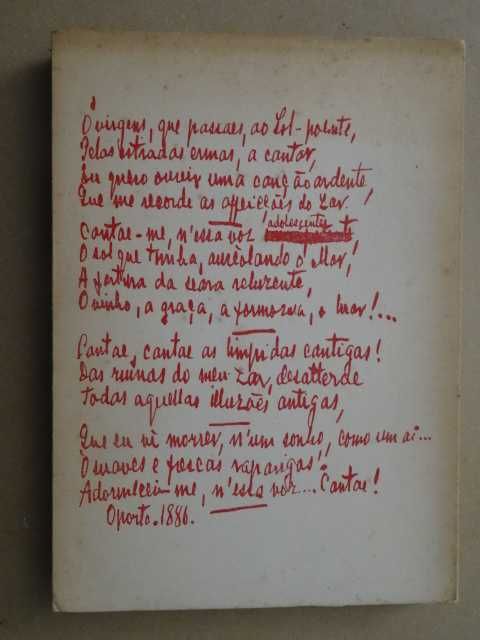 Ó virgens, que passaes, ao Sol-poente,
Pelas estradas ermas, a cantar,
Eu quero ouvir uma canção ardente,
Que me recorde as affeições do Lar.
adolescente
Cantae-me, n'essa voz
O sol que tomba, aureolando o Mar,
A fartura da seara reluzente,
O vinho, a graça, a formosura, o luar!...
Cantae, cantae as limpidas cantigas!
Das ruinas do meu Lar, desatterde
Todas aquellas illuzões antigas,
Que eu vi morrer, n'um sonho, como um ai...
Ó suaves e frescas raparigas!
Adormecei-me, n'essa voz... Cantae!
Oporto. 1886.